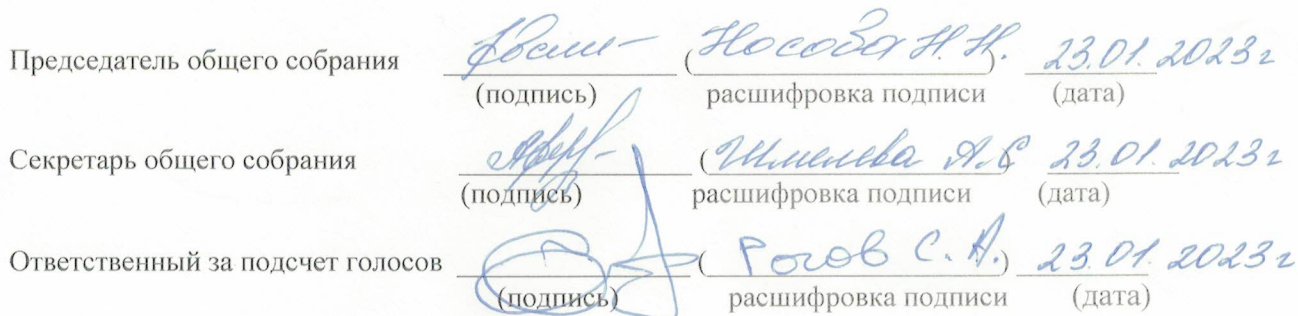 Председатель общего собрания (Носова Н. Н.) 23.01.2023г
(подпись) расшифровка подписи (дата)
Секретарь общего собрания (Шмелева А.С 23.01.2023г
(подпись) расшифровка подписи (дата)
Ответственный за подсчет голосов (Рогов С. А.) 23.01.2023г
(подпись) расшифровка подписи (дата)